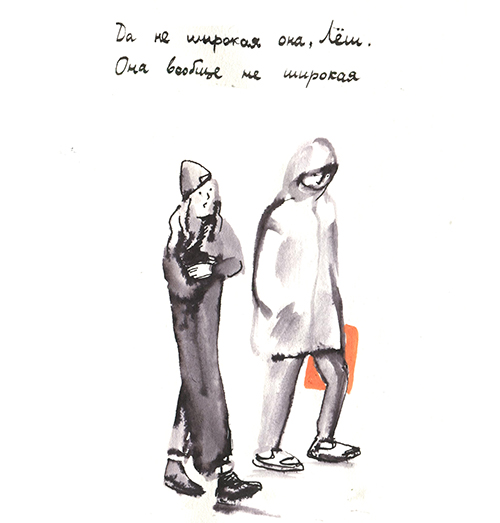 Да не широкая она, Лёш.
Она вообще не широкая